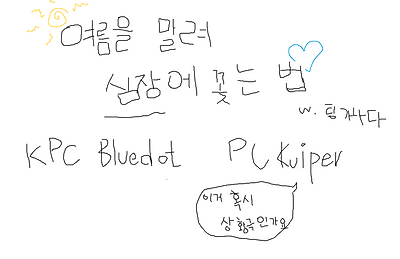 여름을 말려
심장에 꽂는 법
w. 팀가사다
KPC Bluedot PC Kuiper
이거 혹시
상황극인가요